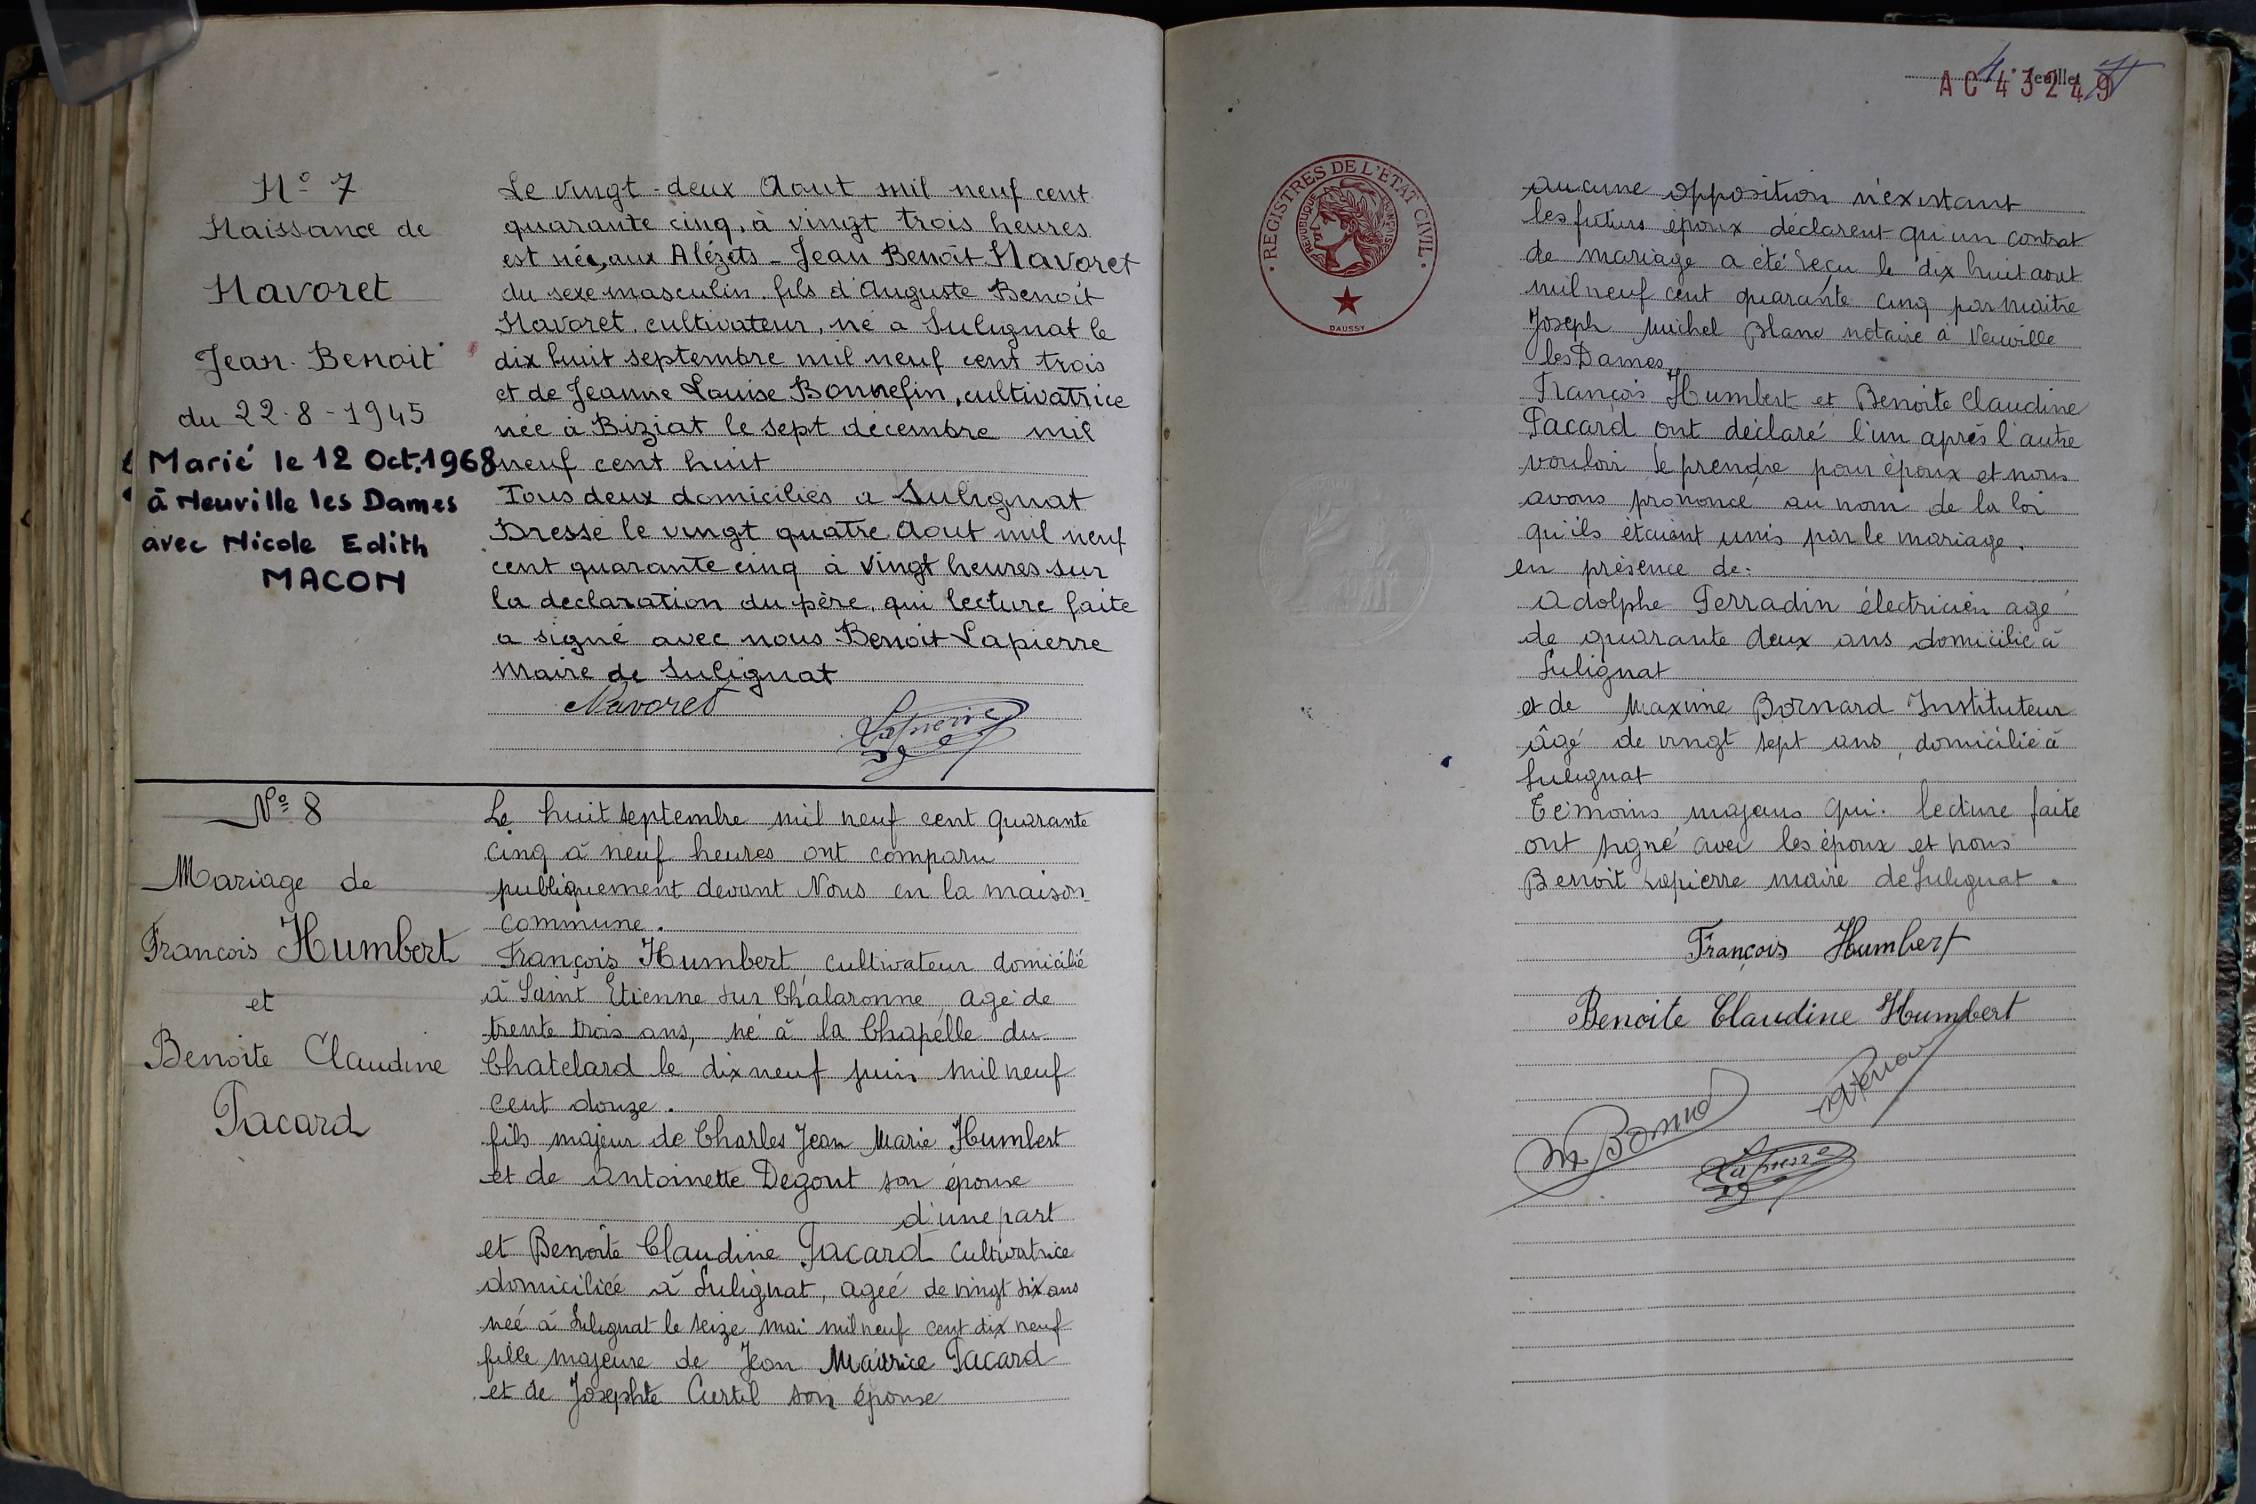 N° 7
Naissance de
Navoret
Jean. Benoit
du 22-8-1945
Marié le 12 Oct. 1968
à Neuville les Dames
avec Nicole Edith
MACON
Le vingt-deux Aout mil neuf cent
quarante cinq, à vingt trois heures
est né, aux Alézets - Jean Benoît Navoret
du sexe masculin. fils d'Auguste Benoît
Navoret, cultivateur, né a Sulignat le
dix huit septembre mil neuf cent trois
et de Jeanne Louise Bonnefin, cultivatrice
née à Biziat le sept décembre mil
neuf cent huit
Tous deux domiciliés a Sulignat
Dressé le vingt quatre Aout mil neuf
cent quarante cinq à vingt heures sur
la declaration du père, qui lecture faite
a signé avec nous Benoit Lapierre
Maire de Sulignat
Navoret
Lapierre
N° 8
Mariage de
Francois Humbert
et
Benoite Claudine
Pacard
Le huit septembre mil neuf cent quarante
cinq à neuf heures ont comparu
publiquement devant Nous en la maison
commune.
François Humbert, cultivateur domicilié
à Saint Etienne sur Chalaronne, agé de
trente trois ans, né à la Chapelle du
Chatelard le dix neuf juin mil neuf
cent douze.
fils majeur de Charles Jean Marie Humbert
et de Antoinette Degout son épouse
d'une part
et Benoîte Claudine Pacard cultivatrice
domiciliée à Sulignat, ageé de vingt six ans
neé à Sulignat le seize mai mil neuf cent dix neuf
fille majeure de Jean Maurice Pacard
et de Josephte Curtil son épouse
4e feuillet
AC 43249
REGISTRES DE L'ÉTAT CIVIL
RÉPUBLIQUE FRANÇAISE
DAUSSY
aucune opposition n'existant
les futurs époux déclarent qu'un contrat
de mariage a été reçu le dix huit aout
mil neuf cent quarante cinq par maître
Joseph Michel Blanc notaire à Neuville
les Dames
François Humbert et Benoite Claudine
Pacard ont déclaré l'un après l'autre
vouloir se prendre pour époux et nous
avons prononcé au nom de la loi
qu'ils étaient unis par le mariage.
en présence de.
Adolphe Perradin électricien agé
de quarante deux ans domicilié à
Sulignat
et de Maxime Bornard Instituteur
âgé de vingt sept ans, domicilié à
Sulignat
Témoins majeurs qui. lecture faite
ont signé avec les époux et nous
Benoit Lapierre maire de Sulignat.
François Humbert
Benoite Claudine Humbert
M Bornard
Lapierre